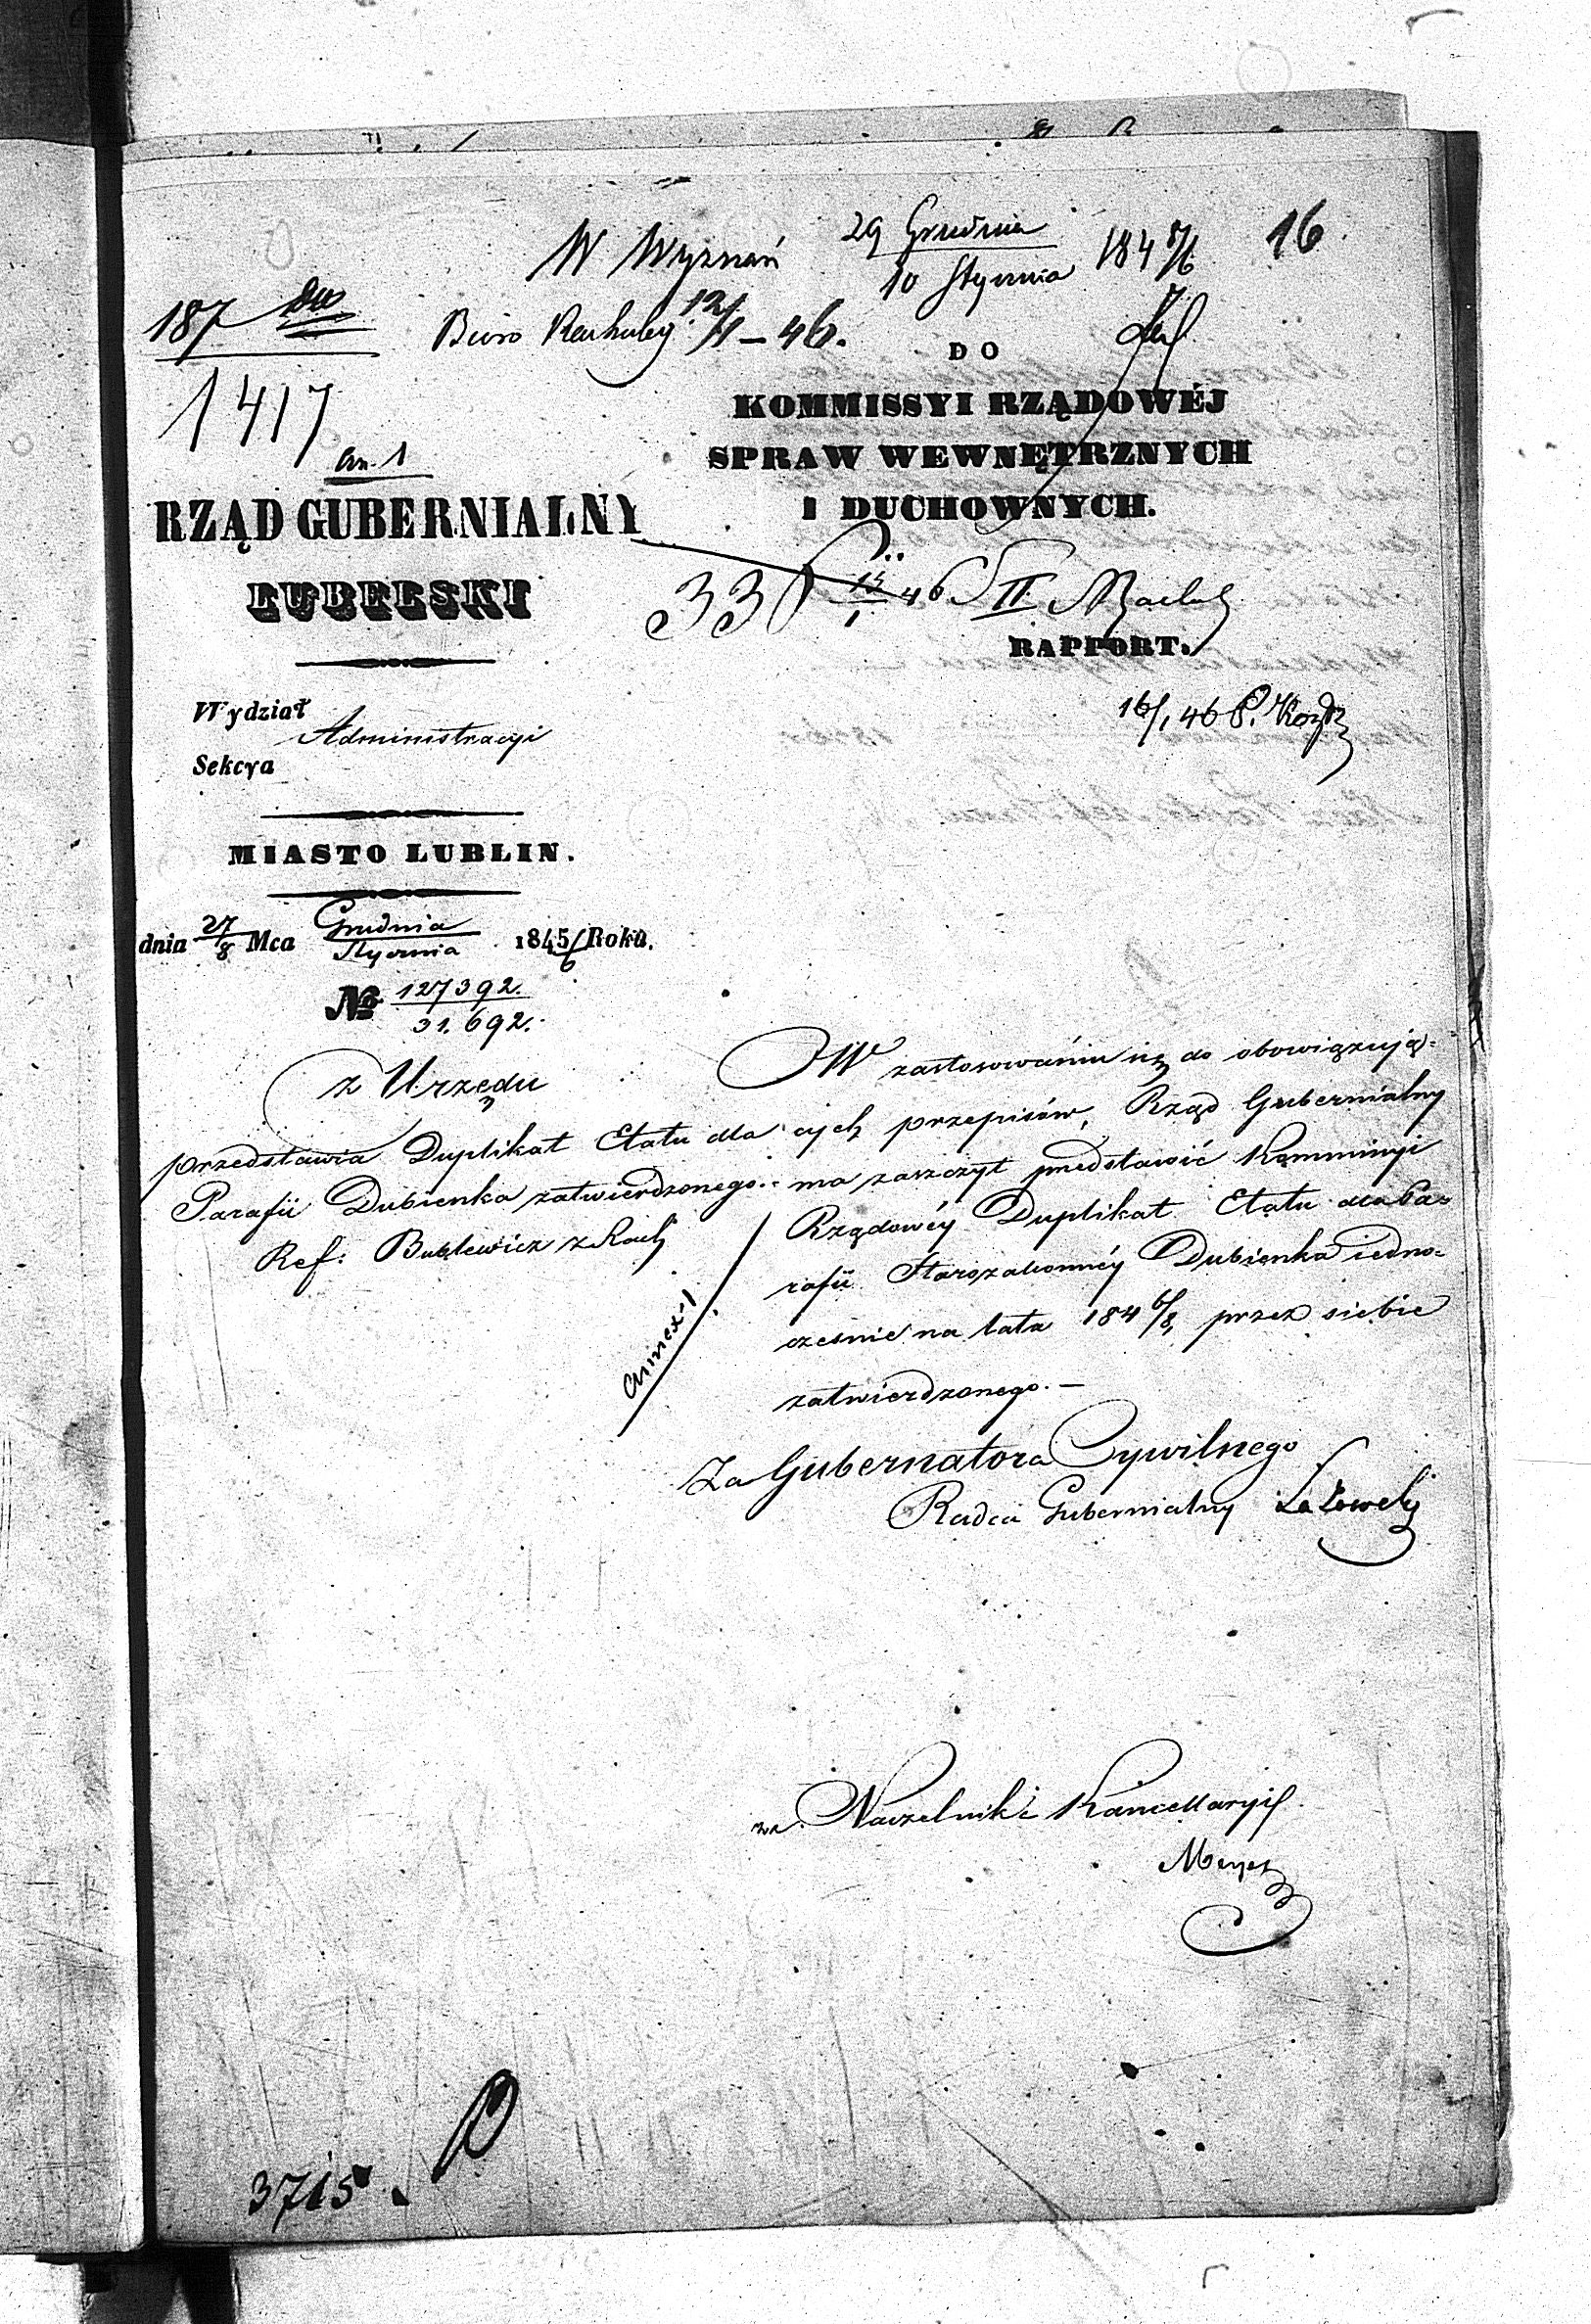 W Wyznań 29 Grudnia 184 5/6 16
10 Stycznia
187
Biuro Rachuby 12/1 – 46.
1417
An. 1
DO
KOMMISSYI RZĄDOWÉJ
SPRAW WEWNĘTRZNYCH
I DUCHOWNYCH.
RZĄD GUBERNIALNY
LUBELSKI
338 13/1 46 II
RAPPORT.
16/1 46
Wydział
Administracyi
Sekcya
MIASTO LUBLIN.
dnia 27/8 Mca Grudnia/Stycznia 1845/6 Roku.
No 127392.
31.692.
z Urzędu
przedstawia Duplikat Etatu dla
Parafii Dubienka zatwierdzonego.
Ref: z Rach
Annex 1
W zastosowaniu się do obowiązują-
cych przepisów, Rząd Gubernialny
ma zaszczyt przedstawić Kommissyi
Rządowéy Duplikat Etatu dla Pa-
rafii Starozakonnéy Dubienka iedno-
cześnie na lata 184 6/8, przez siebie
zatwierdzonego. —
Za Gubernatora Cywilnego
Radca Gubernialny
Naczelnik Kancellaryi
Meyer
3715